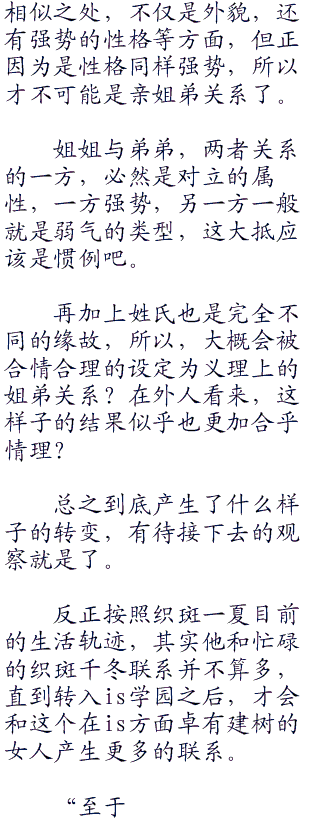 相似之处，不仅是外貌，还
有强势的性格等方面，但正
因为是性格同样强势，所以
才不可能是亲姐弟关系了。
姐姐与弟弟，两者关系
的一方，必然是对立的属
性，一方强势，另一方一般
就是弱气的类型，这大抵应
该是惯例吧。
再加上姓氏也是完全不
同的缘故，所以，大概会被
合情合理的设定为义理上的
姐弟关系？在外人看来，这
样子的结果似乎也更加合乎
情理？
总之到底产生了什么样
子的转变，有待接下去的观
察就是了。
反正按照织斑一夏目前
的生活轨迹，其实他和忙碌
的织斑千冬联系并不算多，
直到转入is学园之后，才会
和这个在is方面卓有建树的
女人产生更多的联系。
“至于